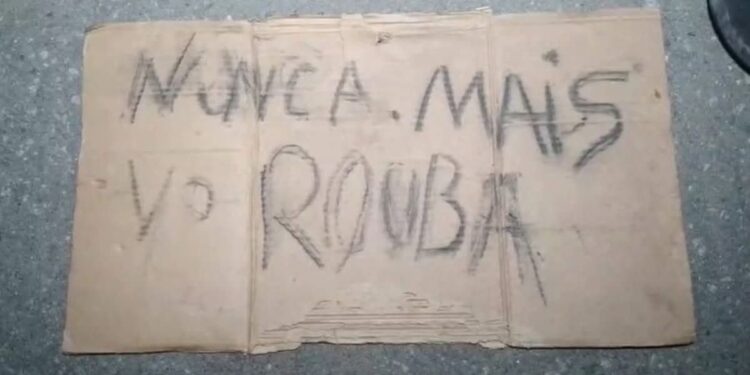 NUNCA. MAiS
VO ROUBA